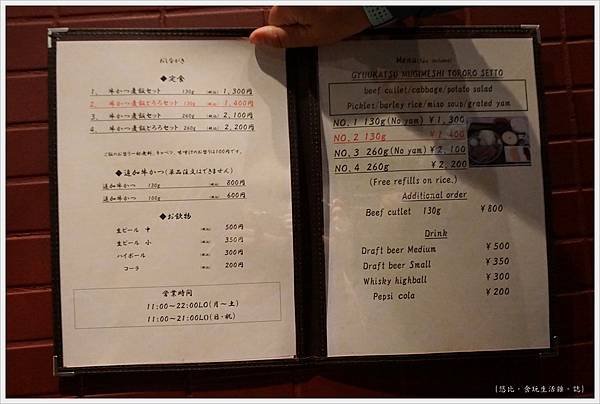 おしながき
◆定食
1、 牛かつ麦飯セット 130g (税込) 1,300円
2、 牛かつ麦飯とろろセット 130g (税込) 1,400円
3、 牛かつ麦飯セット 260g (税込) 2,100円
4、 牛かつ麦飯とろろセット 260g (税込) 2,200円
◆追加牛かつ(単品注文はできません)
追加牛かつ 130g (税込) 800円
追加牛かつ 100g (税込) 600円
◆お飲物
生ビール 中 (税込) 500円
生ビール 小 (税込) 350円
ハイボール (税込) 300円
コーラ (税込) 200円
営業時間
11:00~22:00LO(月~土)
11:00~21:00LO(日・祝)
Menu(tax include)
GYUUKATSU MUGIMESHI TORORO SETTO
beef cutlet/cabbage/potato salad
Pickles/barley rice/miso soup/grated yam
NO. 1 130g(No yam) ¥1,300
NO. 2 130g ¥1,400
NO. 3 260g(No yam) ¥2,100
NO. 4 260g ¥2,200
(Free refills on rice.)
Additional order
Beef cutlet 130g ¥800
Drink
Draft beer Medium ¥500
Draft beer Small ¥350
Whisky highball ¥300
Pepsi cola ¥200
(悠比。食玩生活雜。誌)